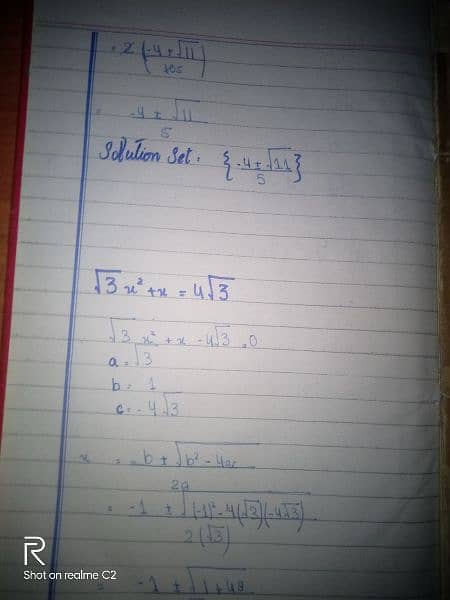 = 2 (-4 ± √11)
10s
= -4 ± √11
5
Solution Set = { -4 ± √11 }
5
√3 x² + x = 4√3
√3 x² + x - 4√3 = 0
a = √3
b = 1
c = - 4√3
x = - b ± √b² - 4ac
2a
= -1 ± √(-1)² - 4(√3)(-4√3)
2(√3)
= -1 ± √1+48
R
Shot on realme C2